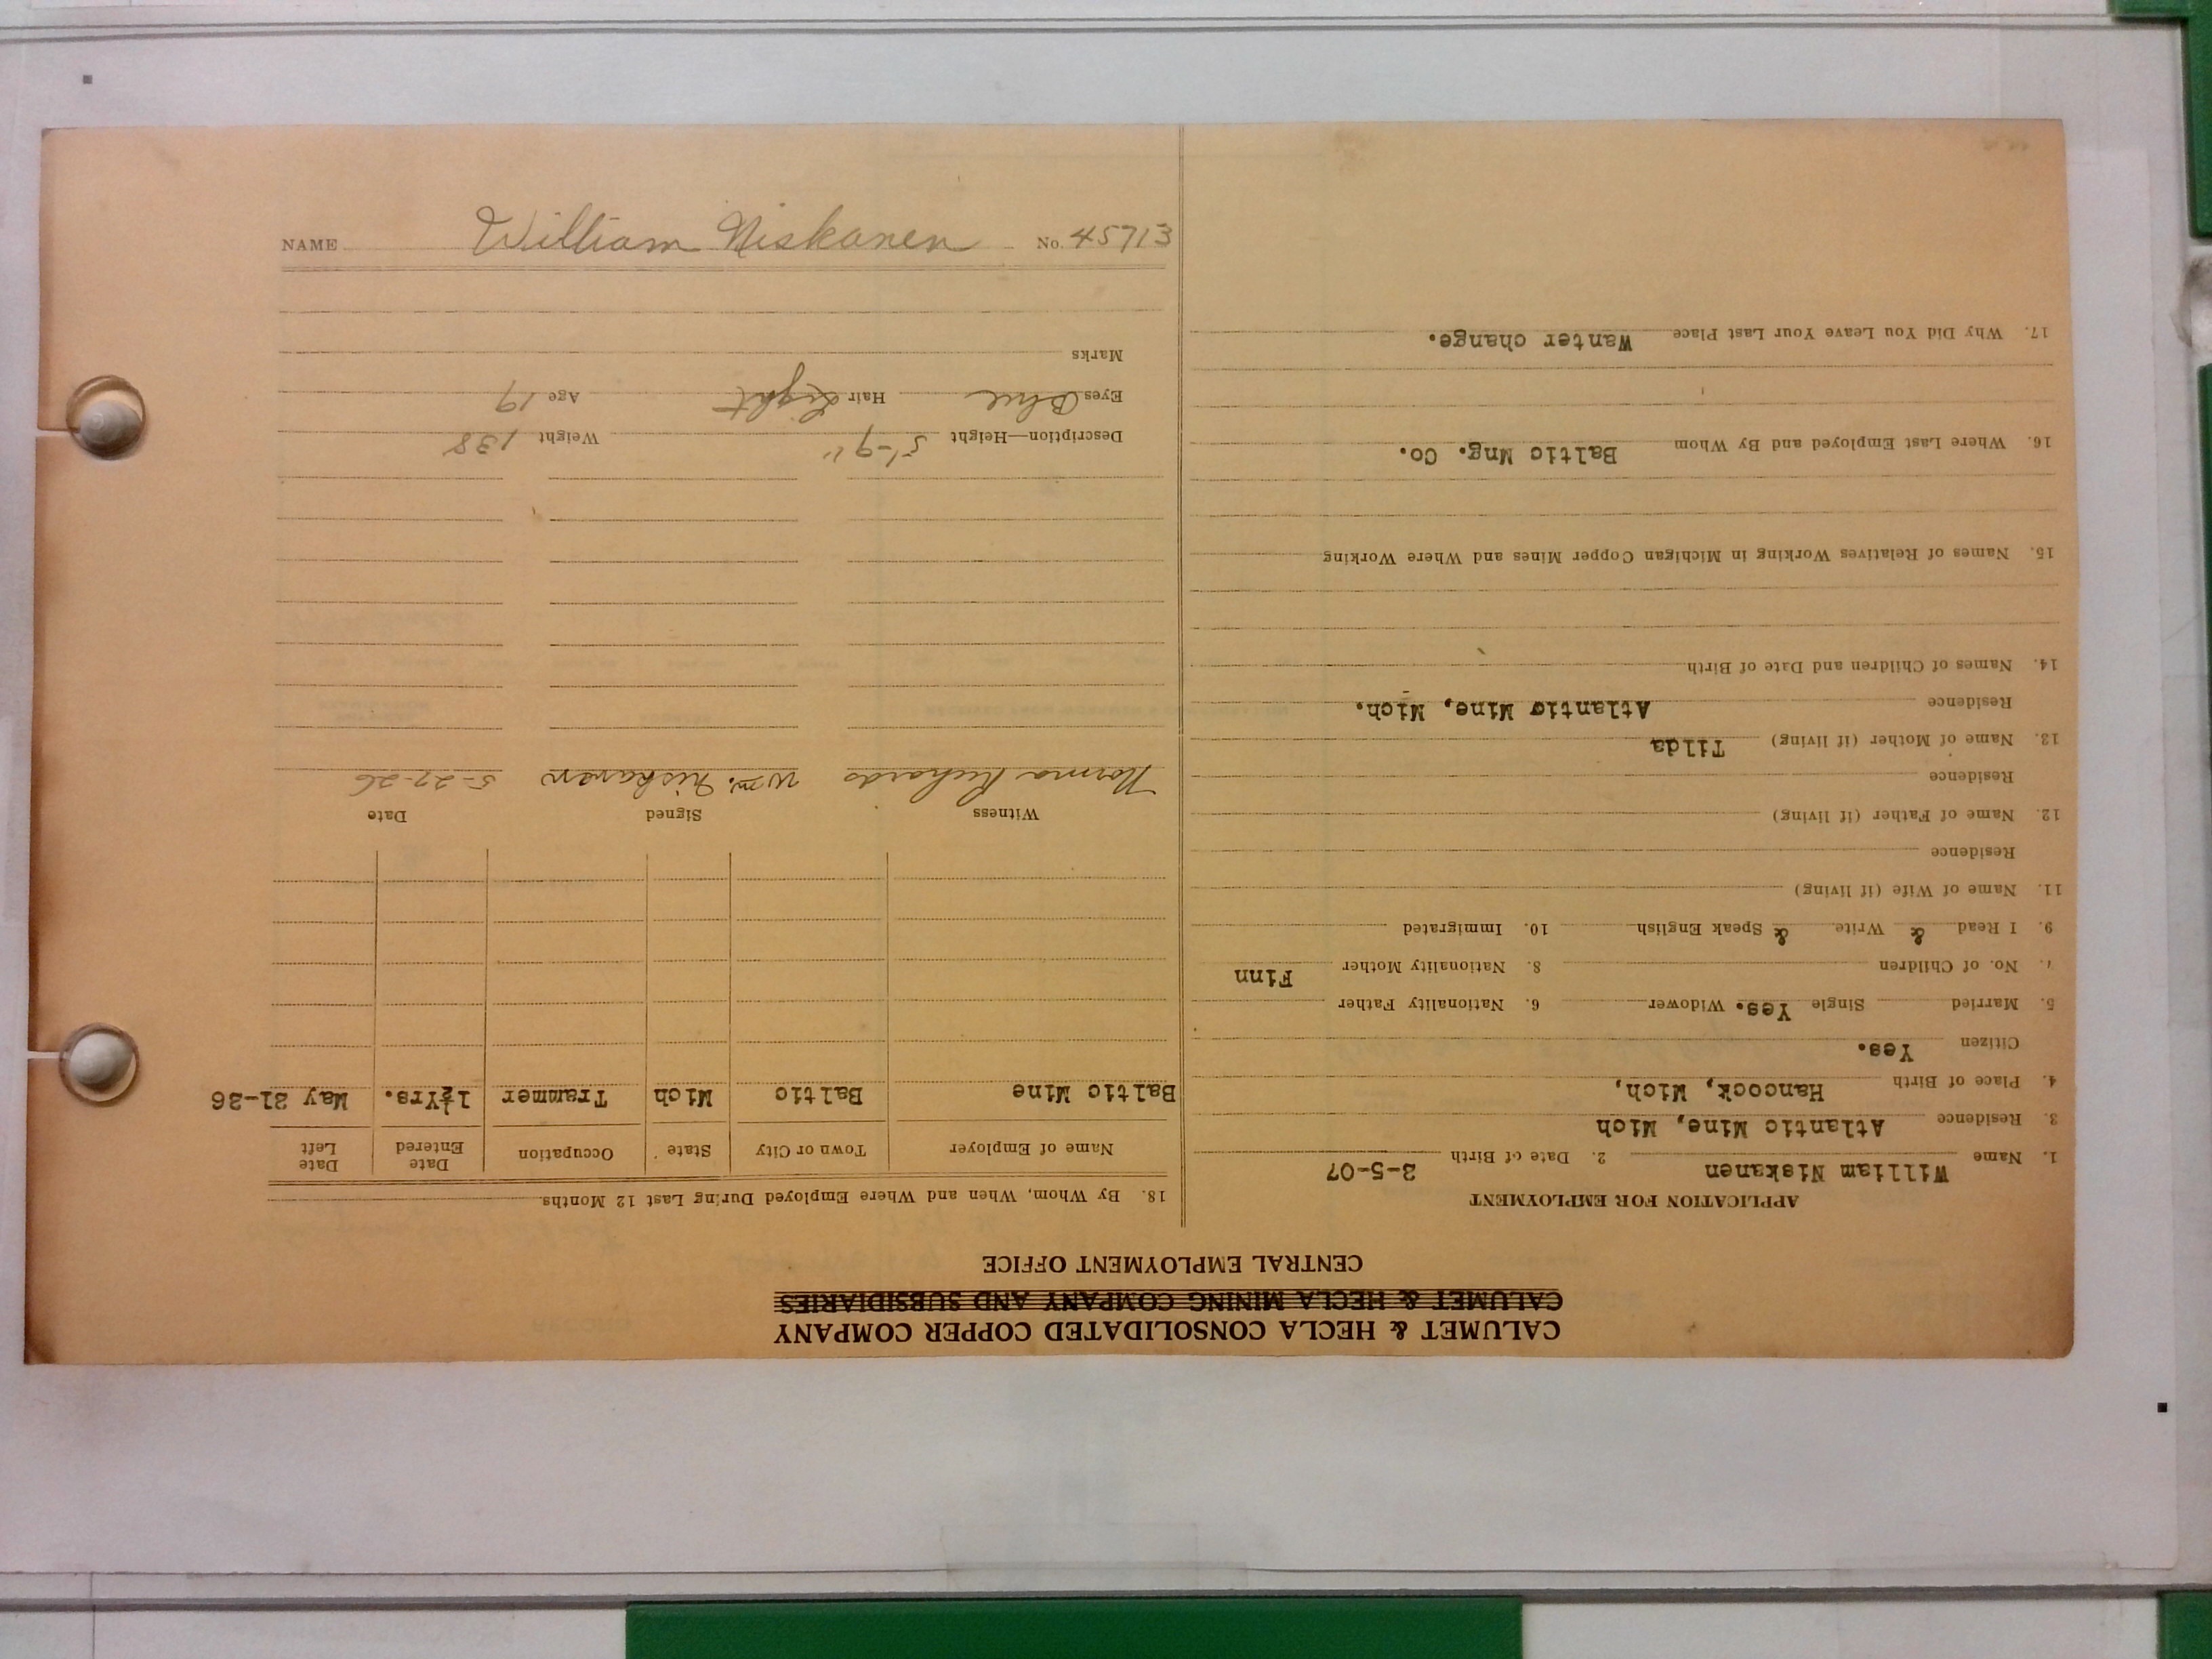 CALUMET & HECLA CONSOLIDATED COPPER COMPANY
CALUMET & HECLA MINING COMPANY AND SUBSIDIARIES
CENTRAL EMPLOYMENT OFFICE
APPLICATION FOR EMPLOYMENT
1. Name William Niskanen 2. Date of Birth 2-5-07
3. Residence Atlantic Mine, Mich
4. Place of Birth Hancock, Mich,
Citizen Yes.
5. Married Single Yes. Widower 6. Nationality Father
7. No. of Children 8. Nationality Mother Finn
9. I Read & Write & Speak English 10. Immigrated
11. Name of Wife (if living)
Residence
12. Name of Father (if living)
Residence
13. Name of Mother (if living) Tilda
Residence Atlantic Mine, Mich.
14. Names of Children and Date of Birth
15. Names of Relatives Working in Michigan Copper Mines and Where Working
16. Where Last Employed and By Whom Baltic Mng. Co.
17. Why Did You Leave Your Last Place Wanter change.
18. By Whom, When and Where Employed During Last 12 Months
Name of Employer Town or City State Occupation Date Entered Date Left
Baltic Mine Baltic Mich Trammer 1½Yrs. May 21-26
Witness Signed Date
Norma Richards Wm. Niskanen 5-27-26
Description—Height 5'-9" Weight 138
Eyes Blue Hair Light Age 19
Marks
NAME William Niskanen No. 45713